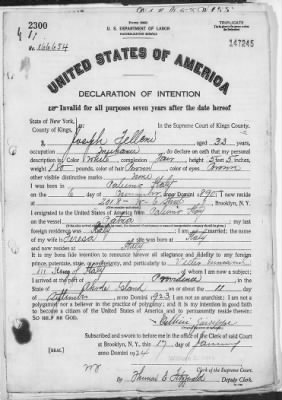 2300
Form 2202
U. S. DEPARTMENT OF LABOR
NATURALIZATION SERVICE
TRIPLICATE
No. 166654
147245
UNITED STATES OF AMERICA
DECLARATION OF INTENTION
Invalid for all purposes seven years after the date hereof
State of New York,
County of Kings,
In the Supreme Court of Kings County.
I, Joseph aged 33 years,
occupation do declare on oath that my personal
description is: Color White, complexion Fair, height 5 feet 5 inches,
weight 180 pounds, color of hair Brown, color of eyes Brown
other visible distinctive marks
I was born in Palermo Italy
on the 6 day of anno Domini 1890; I now reside
at Brooklyn, N. Y.
I emigrated to the United States of America from Palermo Italy
on the vessel Patria; my last
foreign residence was Italy; I am married; the name
of my wife is Teresa; she was born at Italy
and now resides at Italy
It is my bona fide intention to renounce forever all allegiance and fidelity to any foreign
prince, potentate, state, or sovereignty, and particularly to
III King of Italy of whom I am now a subject;
I arrived at the port of Providence, in the
State of Rhode Island, on or about the 11 day
of anno Domini 1923; I am not an anarchist; I am not a
polygamist nor a believer in the practice of polygamy; and it is my intention in good faith
to become a citizen of the United States of America and to permanently reside therein:
SO HELP ME GOD.
Subscribed and sworn to before me in the office of the Clerk of said Court
at Brooklyn, N. Y., this 17 day of January
anno Domini 1924
[SEAL]
Clerk of the Supreme Court.
By Thomas Fitzgerald, Deputy Clerk.